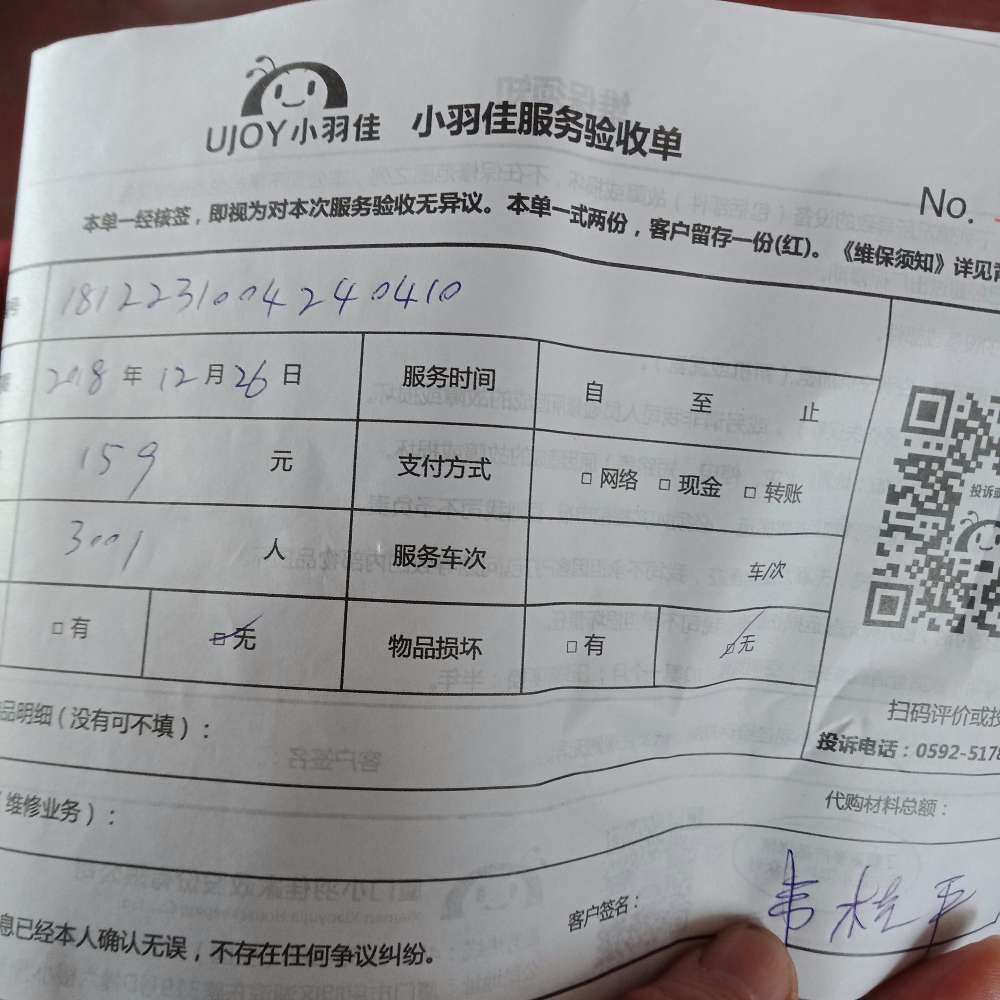 UJOY小羽佳 小羽佳服务验收单
No.
本单一经核签，即视为对本次服务验收无异议。本单一式两份，客户留存一份(红)。《维保须知》详见背
号 1812231004240410
2018 年 12 月 26 日 服务时间 自 至 止
159 元 支付方式 □ 网络 □ 现金 □ 转账
3001 人 服务车次 车/次
□ 有 □ 无 物品损坏 □ 有 □ 无
投诉
扫码评价或投
投诉电话：0592-5178
品明细（没有可不填）：
代购材料总额：
（维修业务）：
客户签名：
息已经本人确认无误，不存在任何争议纠纷。